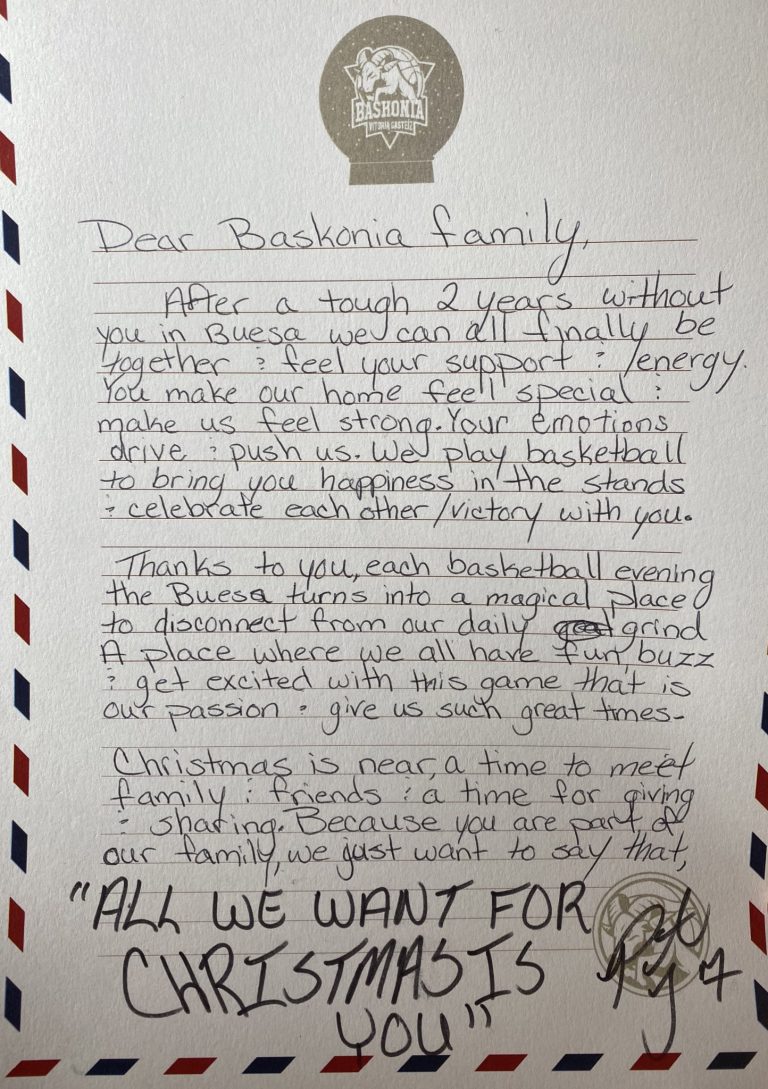 BASKONIA
VITORIA GASTEIZ
Dear Baskonia family,
After a tough 2 years without
you in Buesa we can all finally be
together & feel your support & /energy.
You make our home feel special &
make us feel strong. Your emotions
drive & push us. We play basketball
to bring you happiness in the stands
& celebrate each other/victory with you.
Thanks to you, each basketball evening
the Buesa turns into a magical place
to disconnect from our daily grind
A place where we all have fun, buzz
& get excited with this game that is
our passion & give us such great times-
Christmas is near, a time to meet
family & friends & a time for giving
& sharing. Because you are part of
our family, we just want to say that,
"ALL WE WANT FOR
CHRISTMAS IS
YOU"